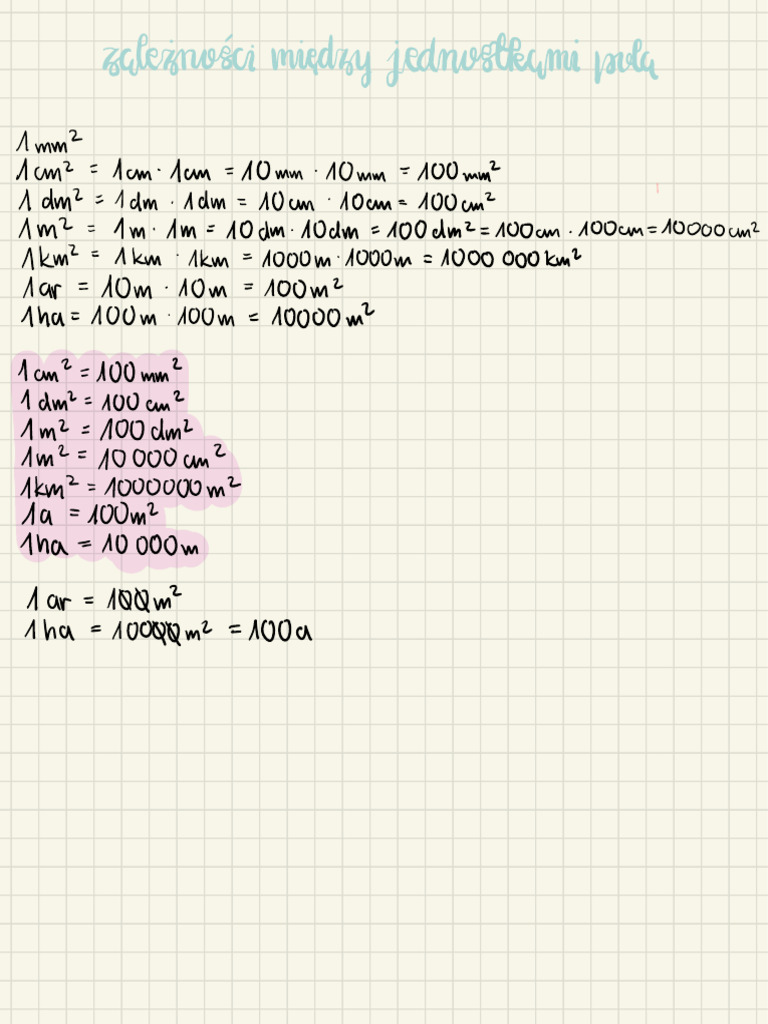 zależności między jednostkami pola
1 mm²
1 cm² = 1cm · 1cm = 10 mm · 10 mm = 100 mm²
1 dm² = 1 dm · 1dm = 10cm · 10cm = 100 cm²
1 m² = 1m · 1m = 10 dm · 10dm = 100 dm² = 100cm · 100cm = 10000 cm²
1 km² = 1km · 1km = 1000m · 1000m = 1000 000 km²
1 ar = 10m · 10m = 100m²
1 ha = 100m · 100m = 10000 m²
1 cm² = 100 mm²
1 dm² = 100 cm²
1 m² = 100 dm²
1m² = 10 000 cm²
1km² = 1000000 m²
1a = 100m²
1ha = 10 000m
1 ar = 100m²
1 ha = 10000m² = 100a